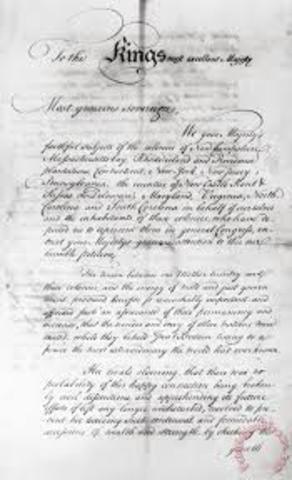 To the Kings most excellent Majesty
Most gracious Sovereign,
We your Majesty's
faithful subjects of the colonies of New hampshire,
Massachusetts bay, Rhode island and Providence
plantations, Connecticut, New York, New Jersey,
Pennsylvania, the counties of New Castle Kent &
Sussex on Delaware, Maryland, Virginia, North
Carolina and South Carolina in behalf of ourselves
and the inhabitants of these colonies, who have de
puted us to represent them in general Congress, en
treat your Majestys gracious attention to this our
humble petition.
The union between our Mother Country and
these colonies, and the energy of mild and just govern
ment, produced benefits so remarkably important and
afforded such an assurance of their permanency and
increase, that the wonder and envy of other nations were
excited, while they beheld Great Britain riseing to a
power the most extraordinary the world had ever known.
Her rivals observing, that there was no
probability of this happy connection being broken
by civil dissentions, and apprehending its future
effects if left any longer undisturbed, resolved to pre
vent her receiving such continual and formidable
accessions of wealth and strength, by checking the